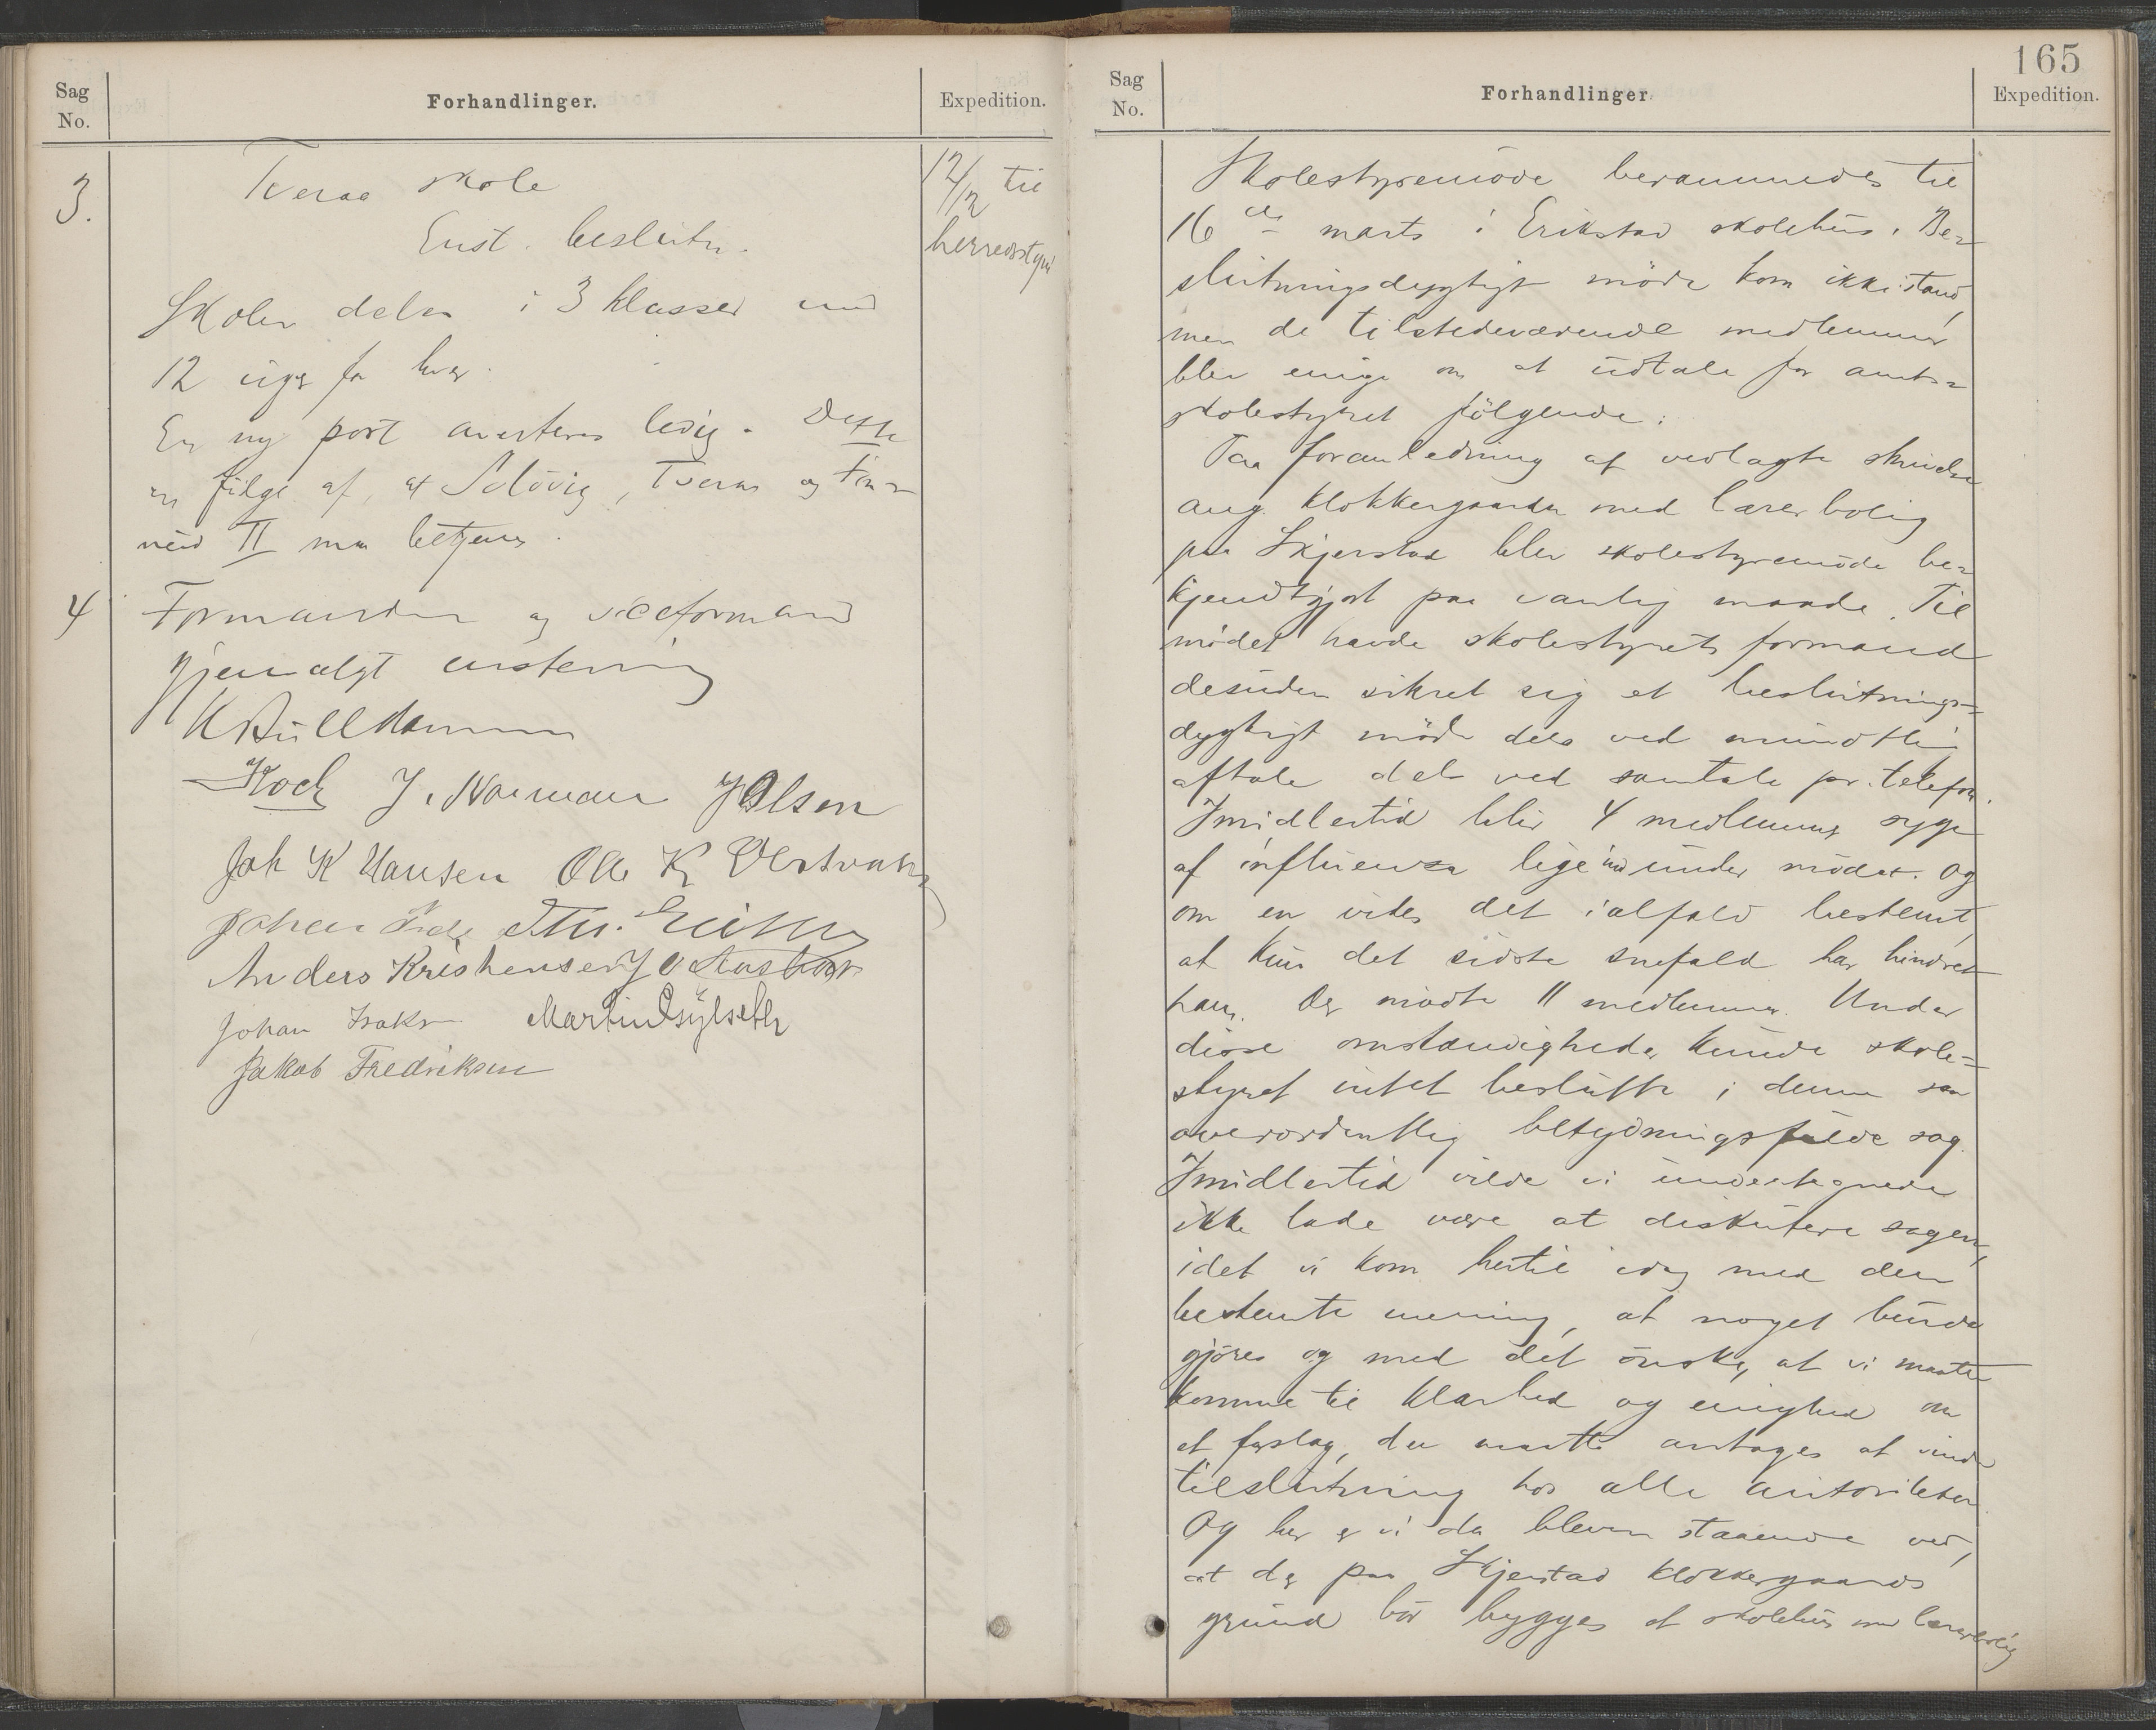 Sag
No.
Forhandlinger.
Expedition.
3.
Tveraa skole
Enst. beslutn.
Skolen deles i 3 klasser med
12 uger for hver.
En ny post averteres ledig. Dette
en følge af, at Seløvig, Tveraa og Fin-
neid II maa betjenes.
12/12 til
herredsstyret
4
Formanden og viceformand
gjenvalgt enstemmig
Koch J. Norman J Olsen
Joh K Hansen Ole K
Johan
Anders Kristensen
Johan Isaks Martin Gylseth
Jakob Fredriksen
165
Sag
No.
Forhandlinger
Expedition.
Skolestyremøde berammedes til
16de marts i Erikstad skolehus. Be-
slutningsdygtigt møde kom ikke istand,
men de tilstedeværende medlemmer
blev enige om at udtale for amts-
skolestyret følgende:
Paa foranledning af vedlagte skrivelse
ang. klokkergaarden med lærerbolig
paa Skjerstad blev skolestyremøde be-
kjendtgjort paa vanlig maade. Til
mødet havde skolestyrets formand
desuden sikret sig et beslutnings-
dygtigt møde dels ved mundtlig
aftale dels ved samtale pr. telefon.
Imidlertid blir 4 medlemmer syge
af influenza lige ind under mødet. Og
om en vides det ialfald bestemt,
at kun det sidste snefald har hindret
ham. Der mødte 11 medlemmer. Under
disse omstændigheder kunde skole-
styret intet beslutte i denne saa
overordentlig betydningsfulde sag.
Imidlertid vilde vi undertegnede
ikke lade være at diskutere sagen,
idet vi kom hertil idag med den
bestemte mening, at noget burde
gjøres og med det ønske, at vi maatte
komme til klarhed og enighed om
et forslag, der maatte antages at vinde
tilslutning hos alle autoriteter.
Og her er vi da bleven staaende ved,
at der paa Skjerstad klokkergaards
grund bør bygges et skolehus med lærerbolig